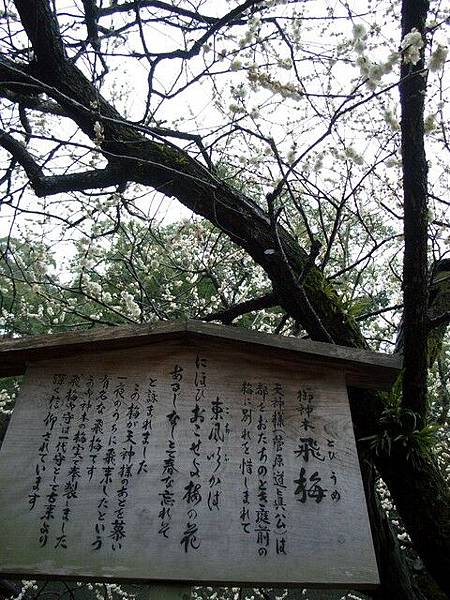 とびうめ
御神木 飛梅
天神様(菅原道真公)は
都をおたちのとき庭前の
梅に別れを惜しまれて
こち
東風ふかば
にほひおこせよ梅の花
あるじなしとて春な忘れそ
と詠まれました
この梅が天神様のあとを慕い
一夜のうちに飛来したという
有名な飛梅です
うめや神の梅実を奉製しました
飛梅守は一代守として古来より
深く仰されています